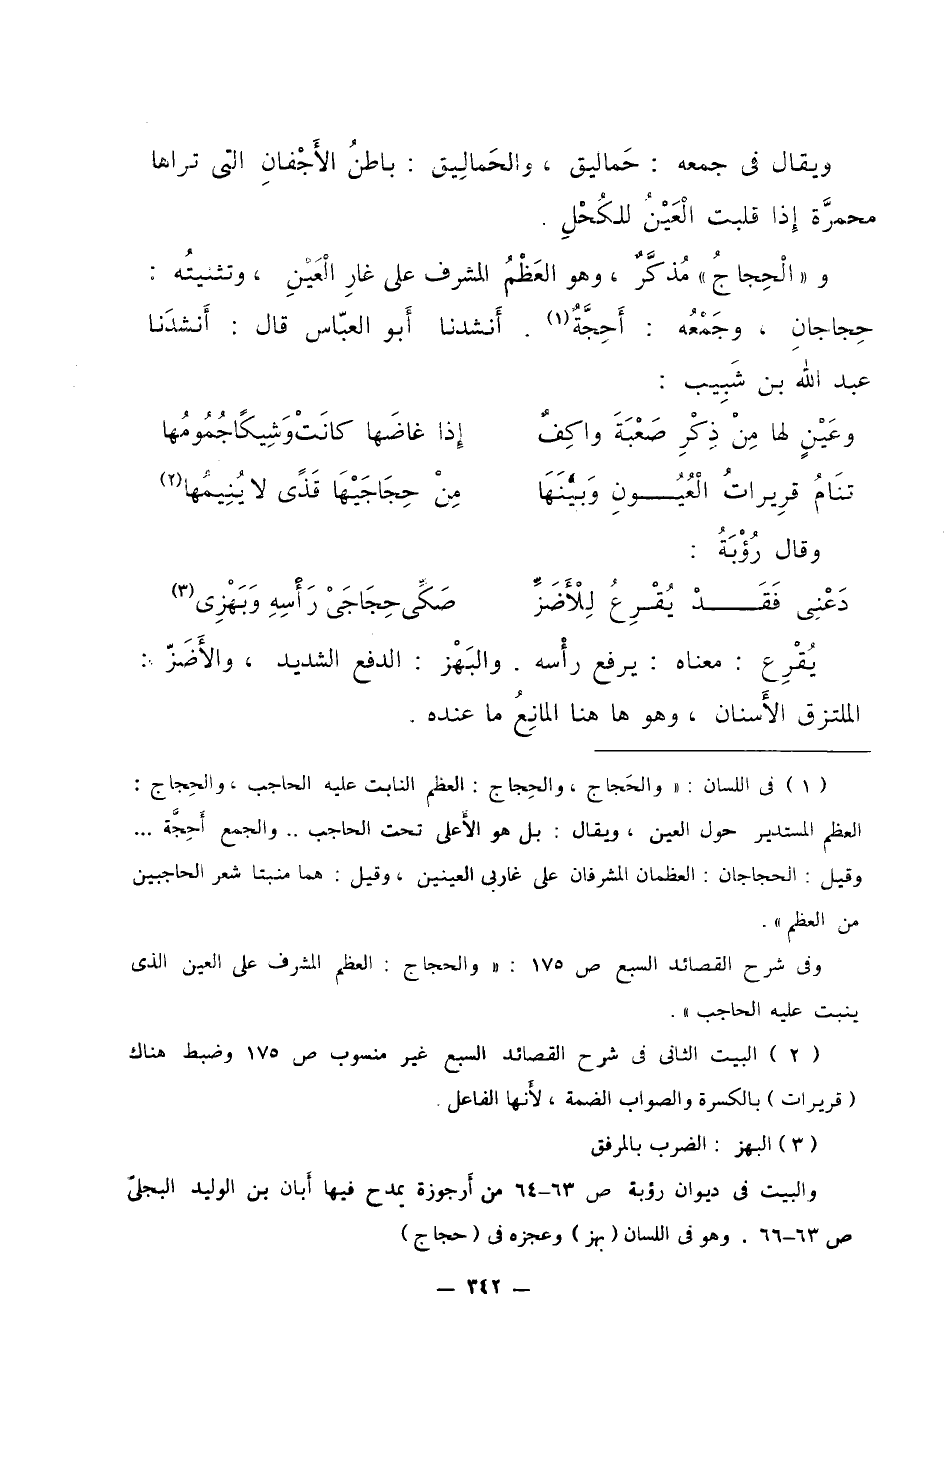 ويقال فى جمعه : حَماليق ، والحَمالِيق : باطنُ الأَجْفانِ التى تراها
محمرَّة إذا قلبت الْعَيْنُ للكُحْلِ .
و « الْحِجاجُ » مُذكَّرٌ ، وهو العَظْمُ المشرف على غارِ الْعَيْنِ ، وتثنيتُه :
حِجاجانِ ، وجَمْعُه : أَحِجَّةٌ(١) . أَنشدنا أبو العبّاس قال : أَنشدَنا
عبد الله بن شَبِيب :
وعَيْنٍ لها مِنْ ذِكْرِ صَعْبَةَ واكِفٌ إذا غاضَها كانَتْ وَشِيكًا جُمُومُها
تنَامُ قريراتُ الْعُيُـــونِ وَبيْنَهَا مِنْ حِجاجَيْهَا قَذًى لا يُنِيمُها(٢)
وقال رُؤْبَةُ :
دَعْنِى فَقَـــدْ يُقْـرِعُ لِلْأَضَزِّ صَكِّى حِجَاجَىْ رَأْسِهِ وَبَهْزِى(٣)
يُقْرِع : معناه : يرفع رأْسه . والبَهْز : الدفع الشديد ، والأَضَزّ :
الملتزق الأَسنان ، وهو ها هنا المانِعُ ما عنده .
( ١ ) فى اللسان : « والحَجاج ، والحِجاج : العظم النابت عليه الحاجب ، والحِجاج :
العظم المستدير حول العين ، ويقال : بل هو الأَعلى تحت الحاجب .. والجمع أَحِجَّة ...
وقيل : الحجاجان : العظمان المشرفان على غاربى العينين ، وقيل : هما منبتا شعر الحاجبين
من العظم » .
وفى شرح القصائد السبع ص ١٧٥ : « والحجاج : العظم المشرف على العين الذى
ينبت عليه الحاجب » .
( ٢ ) البيت الثانى فى شرح القصائد السبع غير منسوب ص ١٧٥ وضبط هناك
( قريرات ) بالكسرة والصواب الضمة ، لأَنها الفاعل .
( ٣ ) البهز : الضرب بالمرفق
والبيت فى ديوان رؤبة ص ٦٣–٦٤ من أَرجوزة يمدح فيها أَبان بن الوليد البجلىّ
ص ٦٣–٦٦ . وهو فى اللسان ( بهز ) وعجزه فى ( حجاج )
– ٣٤٢ –